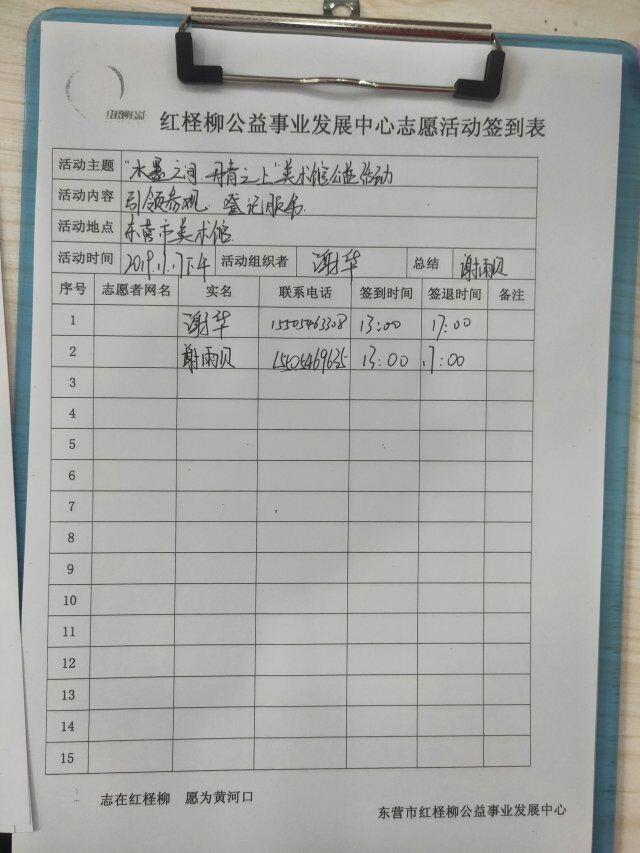 红柽柳公益
红柽柳公益事业发展中心志愿活动签到表
活动主题 "水墨之间 丹青之上"美术馆公益活动
活动内容 引领参观、登记服务
活动地点 东营市美术馆
活动时间 活动组织者 谢华 总结 谢雨贝
序号 志愿者网名 实名 联系电话 签到时间 签退时间 备注
1 谢华 15505463308 13:00 17:00
2 谢雨贝 13:00 17:00
3
4
5
6
7
8
9
10
11
12
13
14
15
志在红柽柳 愿为黄河口
东营市红柽柳公益事业发展中心